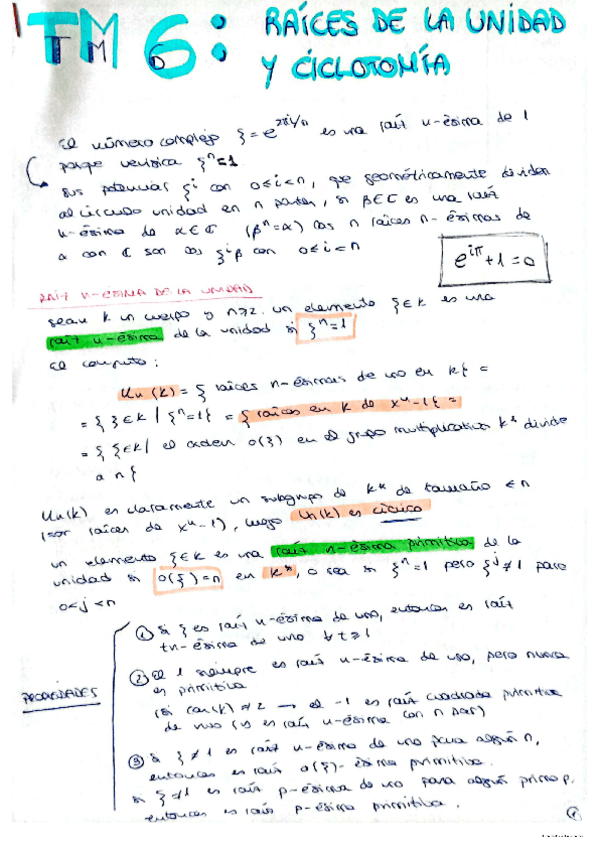 TM 6: RAÍCES DE LA UNIDAD
Y CICLOTOMÍA
El número complejo ξ = e^{2πi/n} es una raíz n-ésima de 1
porque verifica ξ^n = 1
sus potencias ξ^i con 0≤i<n, que geométricamente dividen
al círculo unidad en n partes, si β∈ℂ es una raíz
n-ésima de α∈ℂ (β^n=α) las n raíces n-ésimas de
α con ℂ son los ξ^i β con 0≤i<n
e^{iπ}+1=0
RAÍZ N-ÉSIMA DE LA UNIDAD
sean K un cuerpo y n≥2. un elemento ξ∈K es una
raíz n-ésima de la unidad si ξ^n=1
El conjunto:
Un(K) = { raíces n-ésimas de uno en K} =
= { ξ∈K | ξ^n=1} = { raíces en K de x^n-1} =
= { ξ∈K | el orden o(ξ) en el grupo multiplicativo K* divide
a n}
Un(K) es claramente un subgrupo de K* de tamaño ≤ n
(por raíces de x^n-1), luego Un(K) es cíclico
un elemento ξ∈K es una raíz n-ésima primitiva de la
unidad si o(ξ)=n en K*, o sea si ξ^n=1 pero ξ^j≠1 para
0<j<n
PROPIEDADES
① Si ξ es raíz n-ésima de uno, entonces es raíz
tn-ésima de uno ∀ t≥1
② El 1 siempre es raíz n-ésima de uno, pero nunca
es primitiva
(si car(K) ≠ 2 → el -1 es raíz cuadrada primitiva
de uno (y es raíz n-ésima con n par)
③ Si ξ≠1 es raíz n-ésima de uno para algún n,
entonces es raíz o(ξ)-ésima primitiva.
si ξ≠1 es raíz p-ésima de uno para algún primo p.
entonces es raíz p-ésima primitiva.